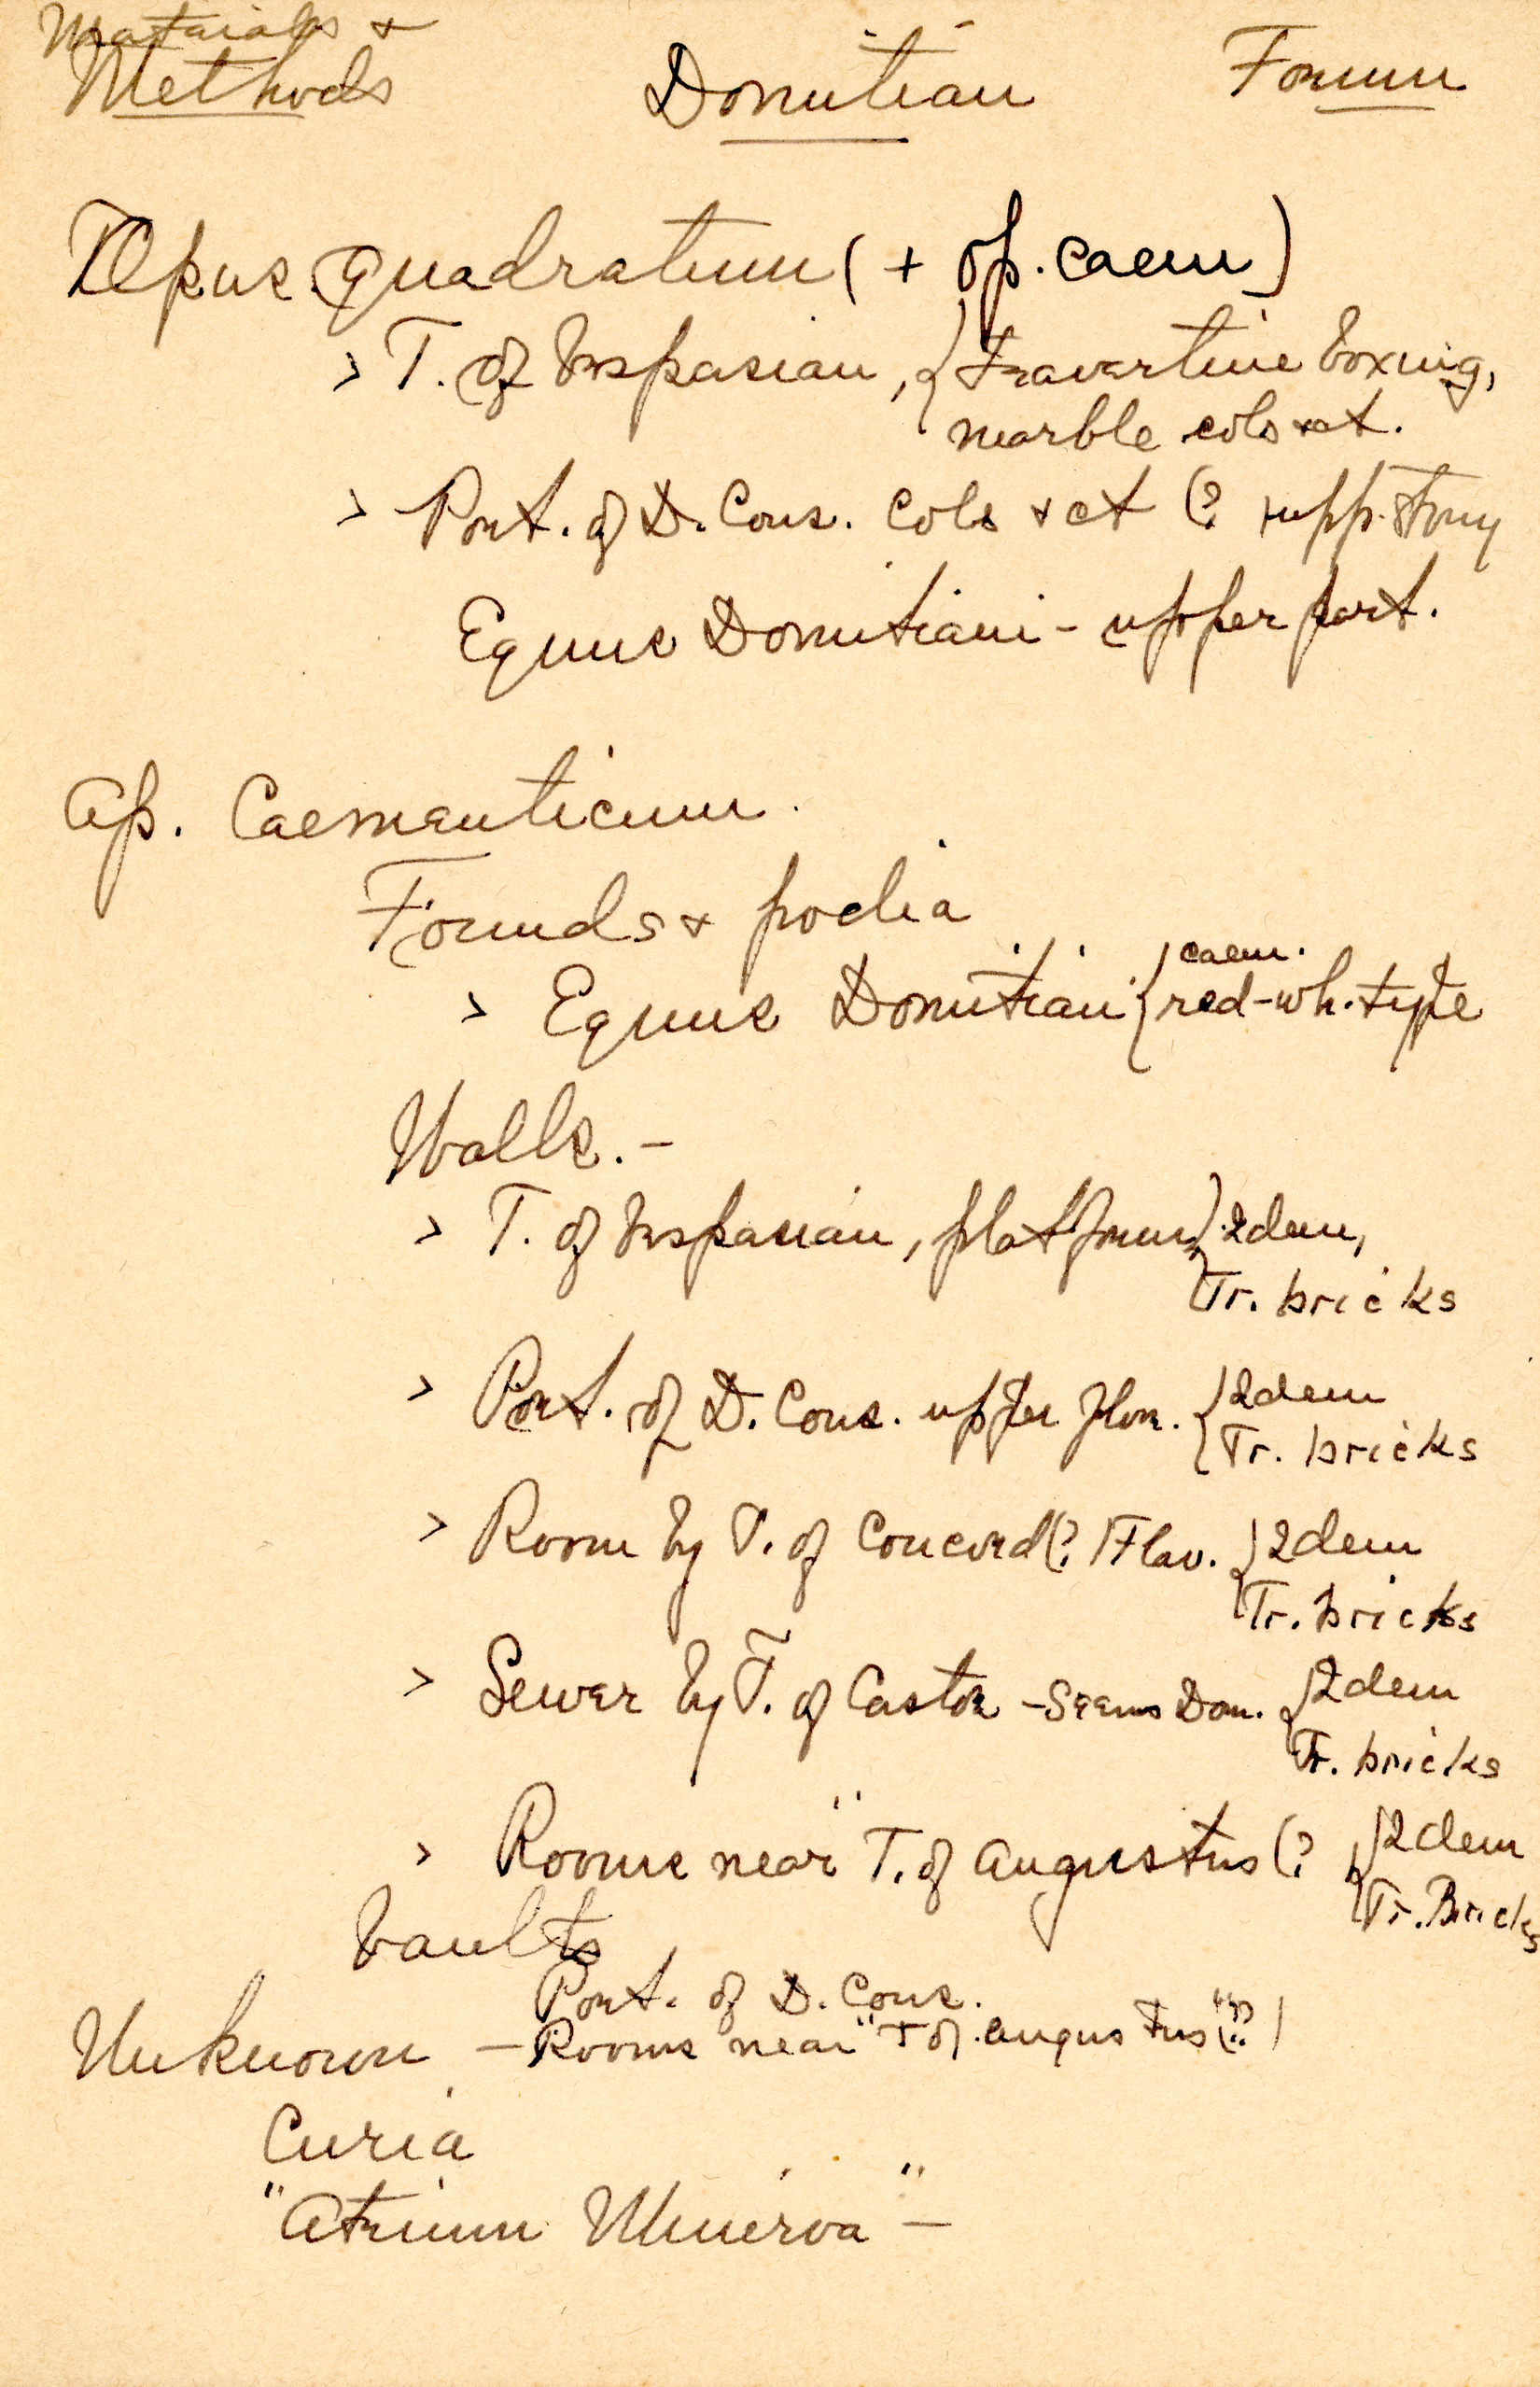 Materials &
Methods Domitian Forum
Opus quadratum (+ op. caem)
> T. of Vespasian, { travertine boxing,
marble cols + ct.
> Port. of D. Cons. Cols + ct (? upp. story
Equus Domitiani - upper part.
Op. Caementicum.
Founds & podia
> Equus Domitiani { caem.
red-wh. type
Walls. -
> T. of Vespasian, platform { 2dem,
Tr. bricks
> Port. of D. Cons. upper floor. { 2dem
Tr. bricks
> Room by T. of Concord (? Flav. { 2dem
Tr. bricks
> Sewer by T. of Castor - Seems Dom. { 2dem
Tr. bricks
> Rooms near "T. of Augustus" (? { 2dem
Tr. Bricks
Vaults
Port. of D. Cons.
Unknown - Rooms near "T of Augustus" (??)
Curia
"Atrium Minerva" -